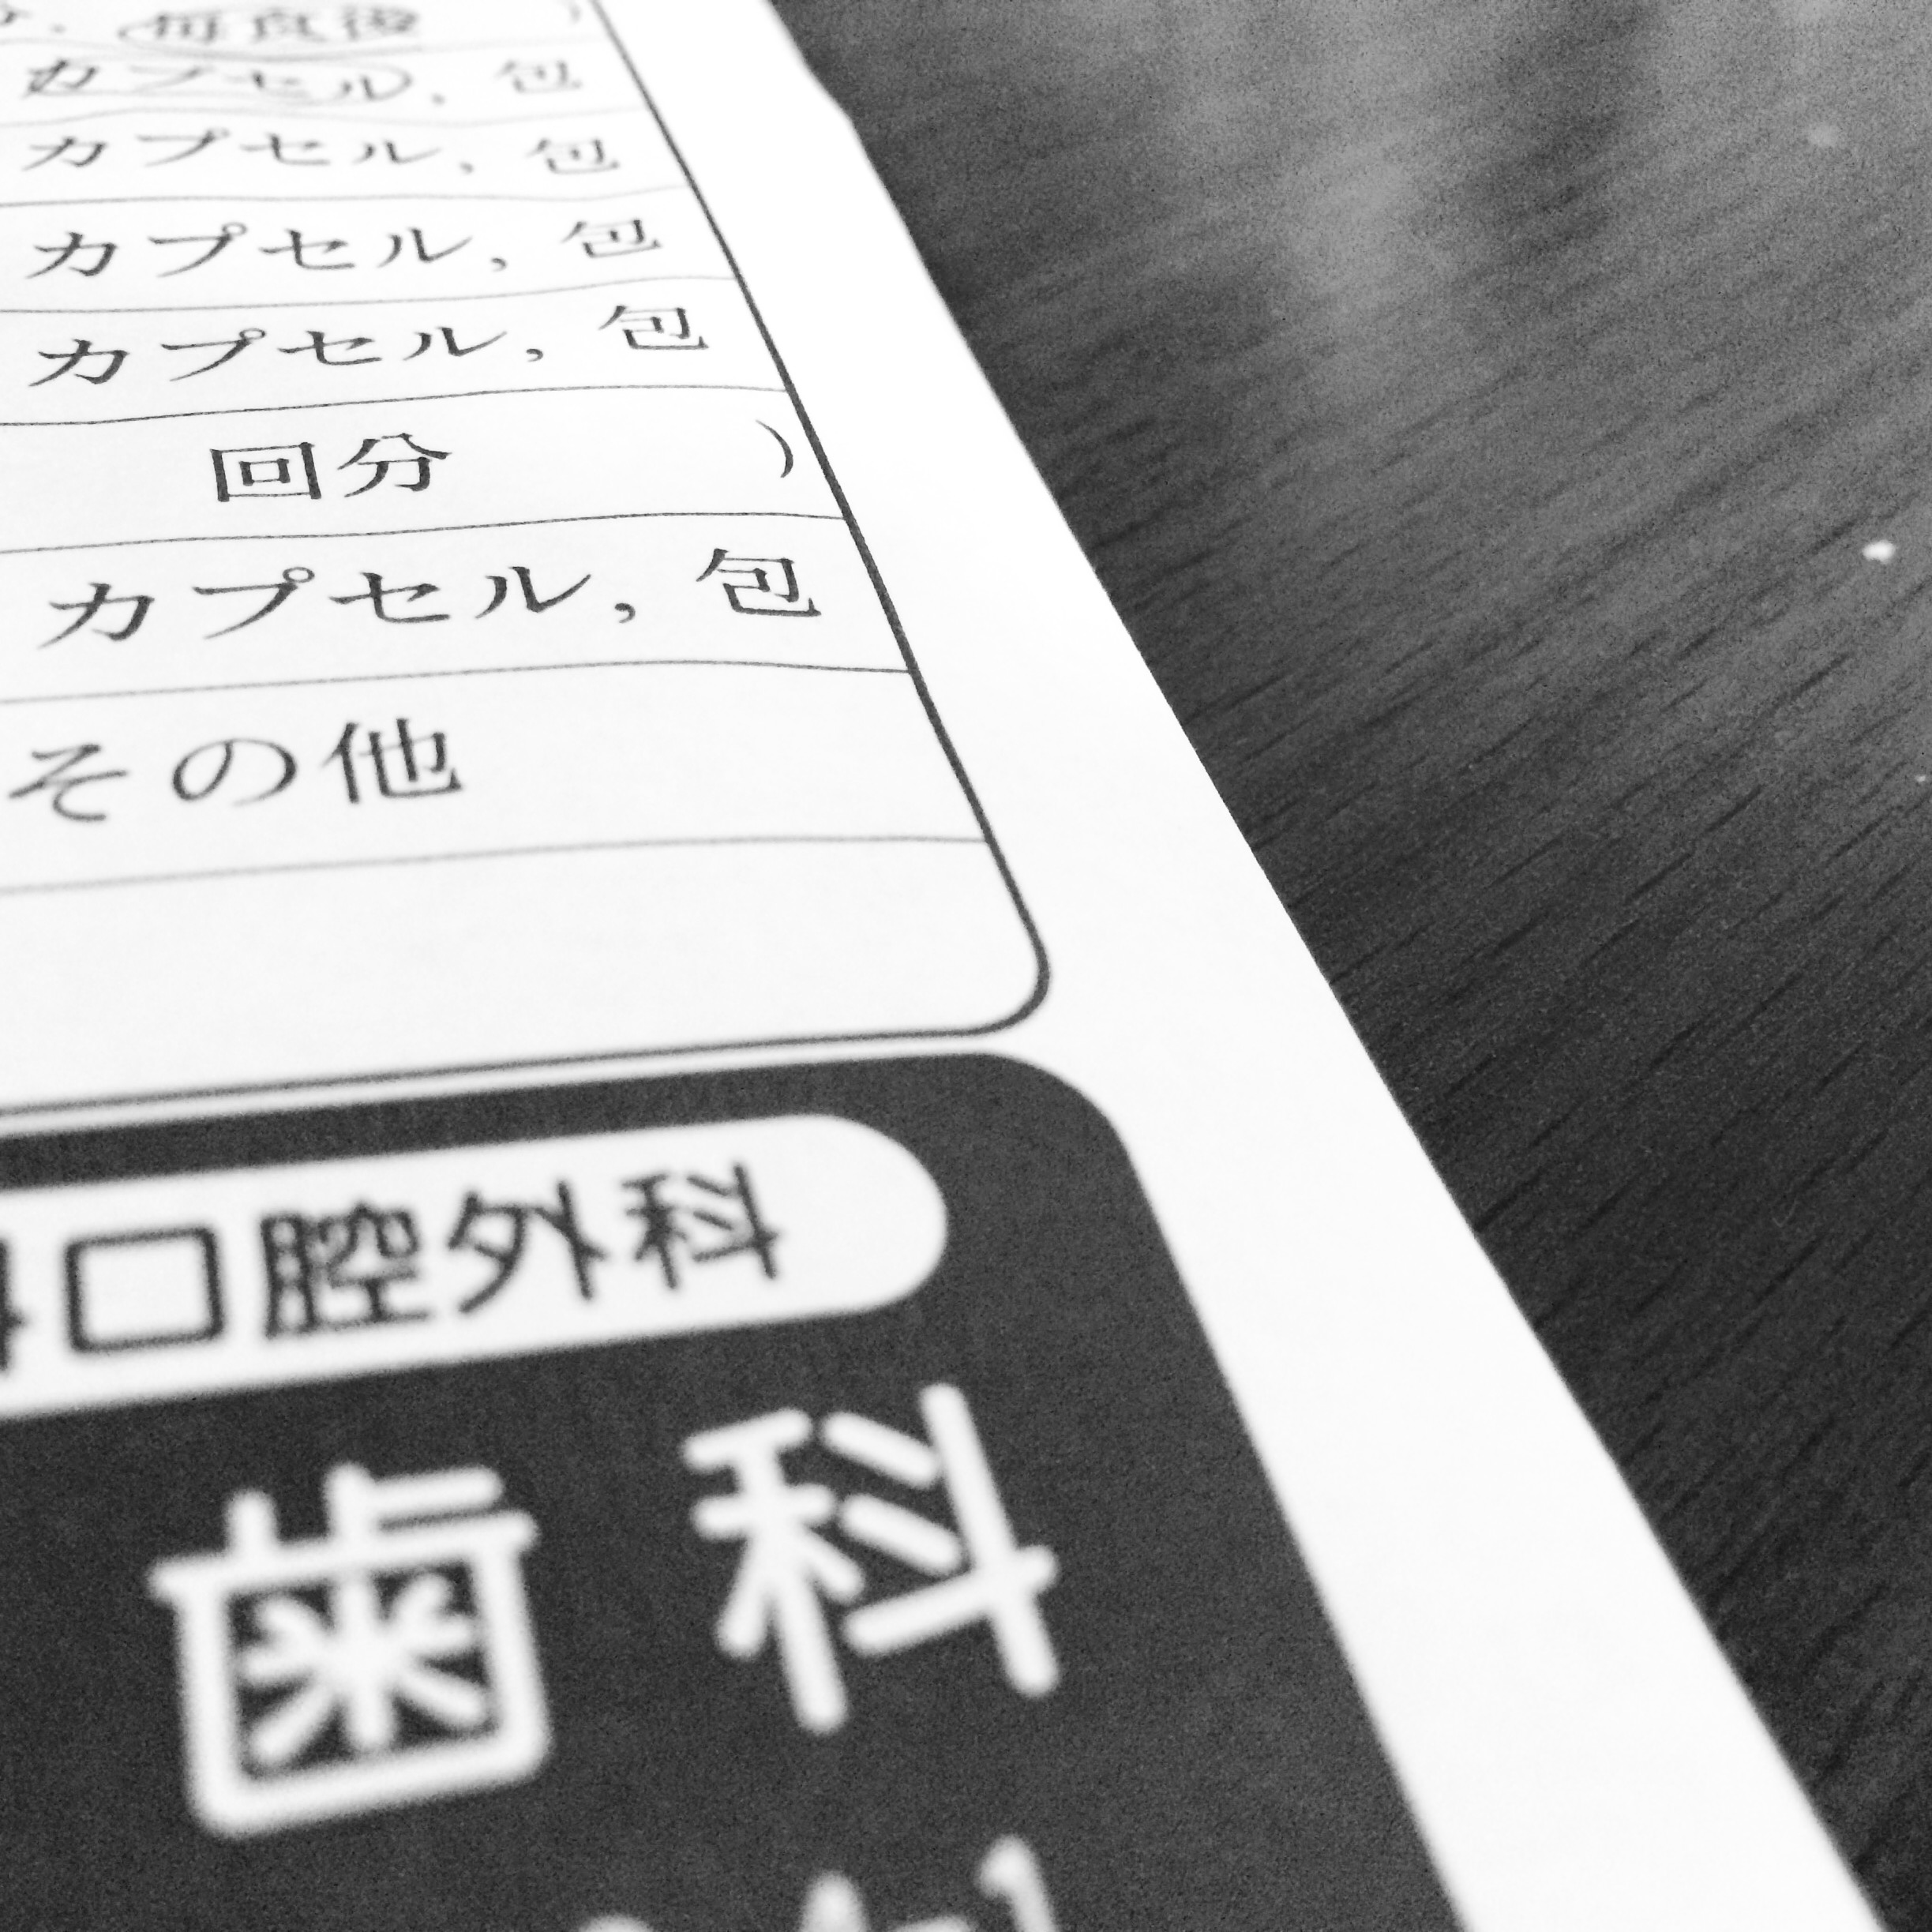 毎食後 )
カプセル, 包
カプセル, 包
カプセル, 包
カプセル, 包
回分 )
カプセル, 包
その他
口腔外科
歯科